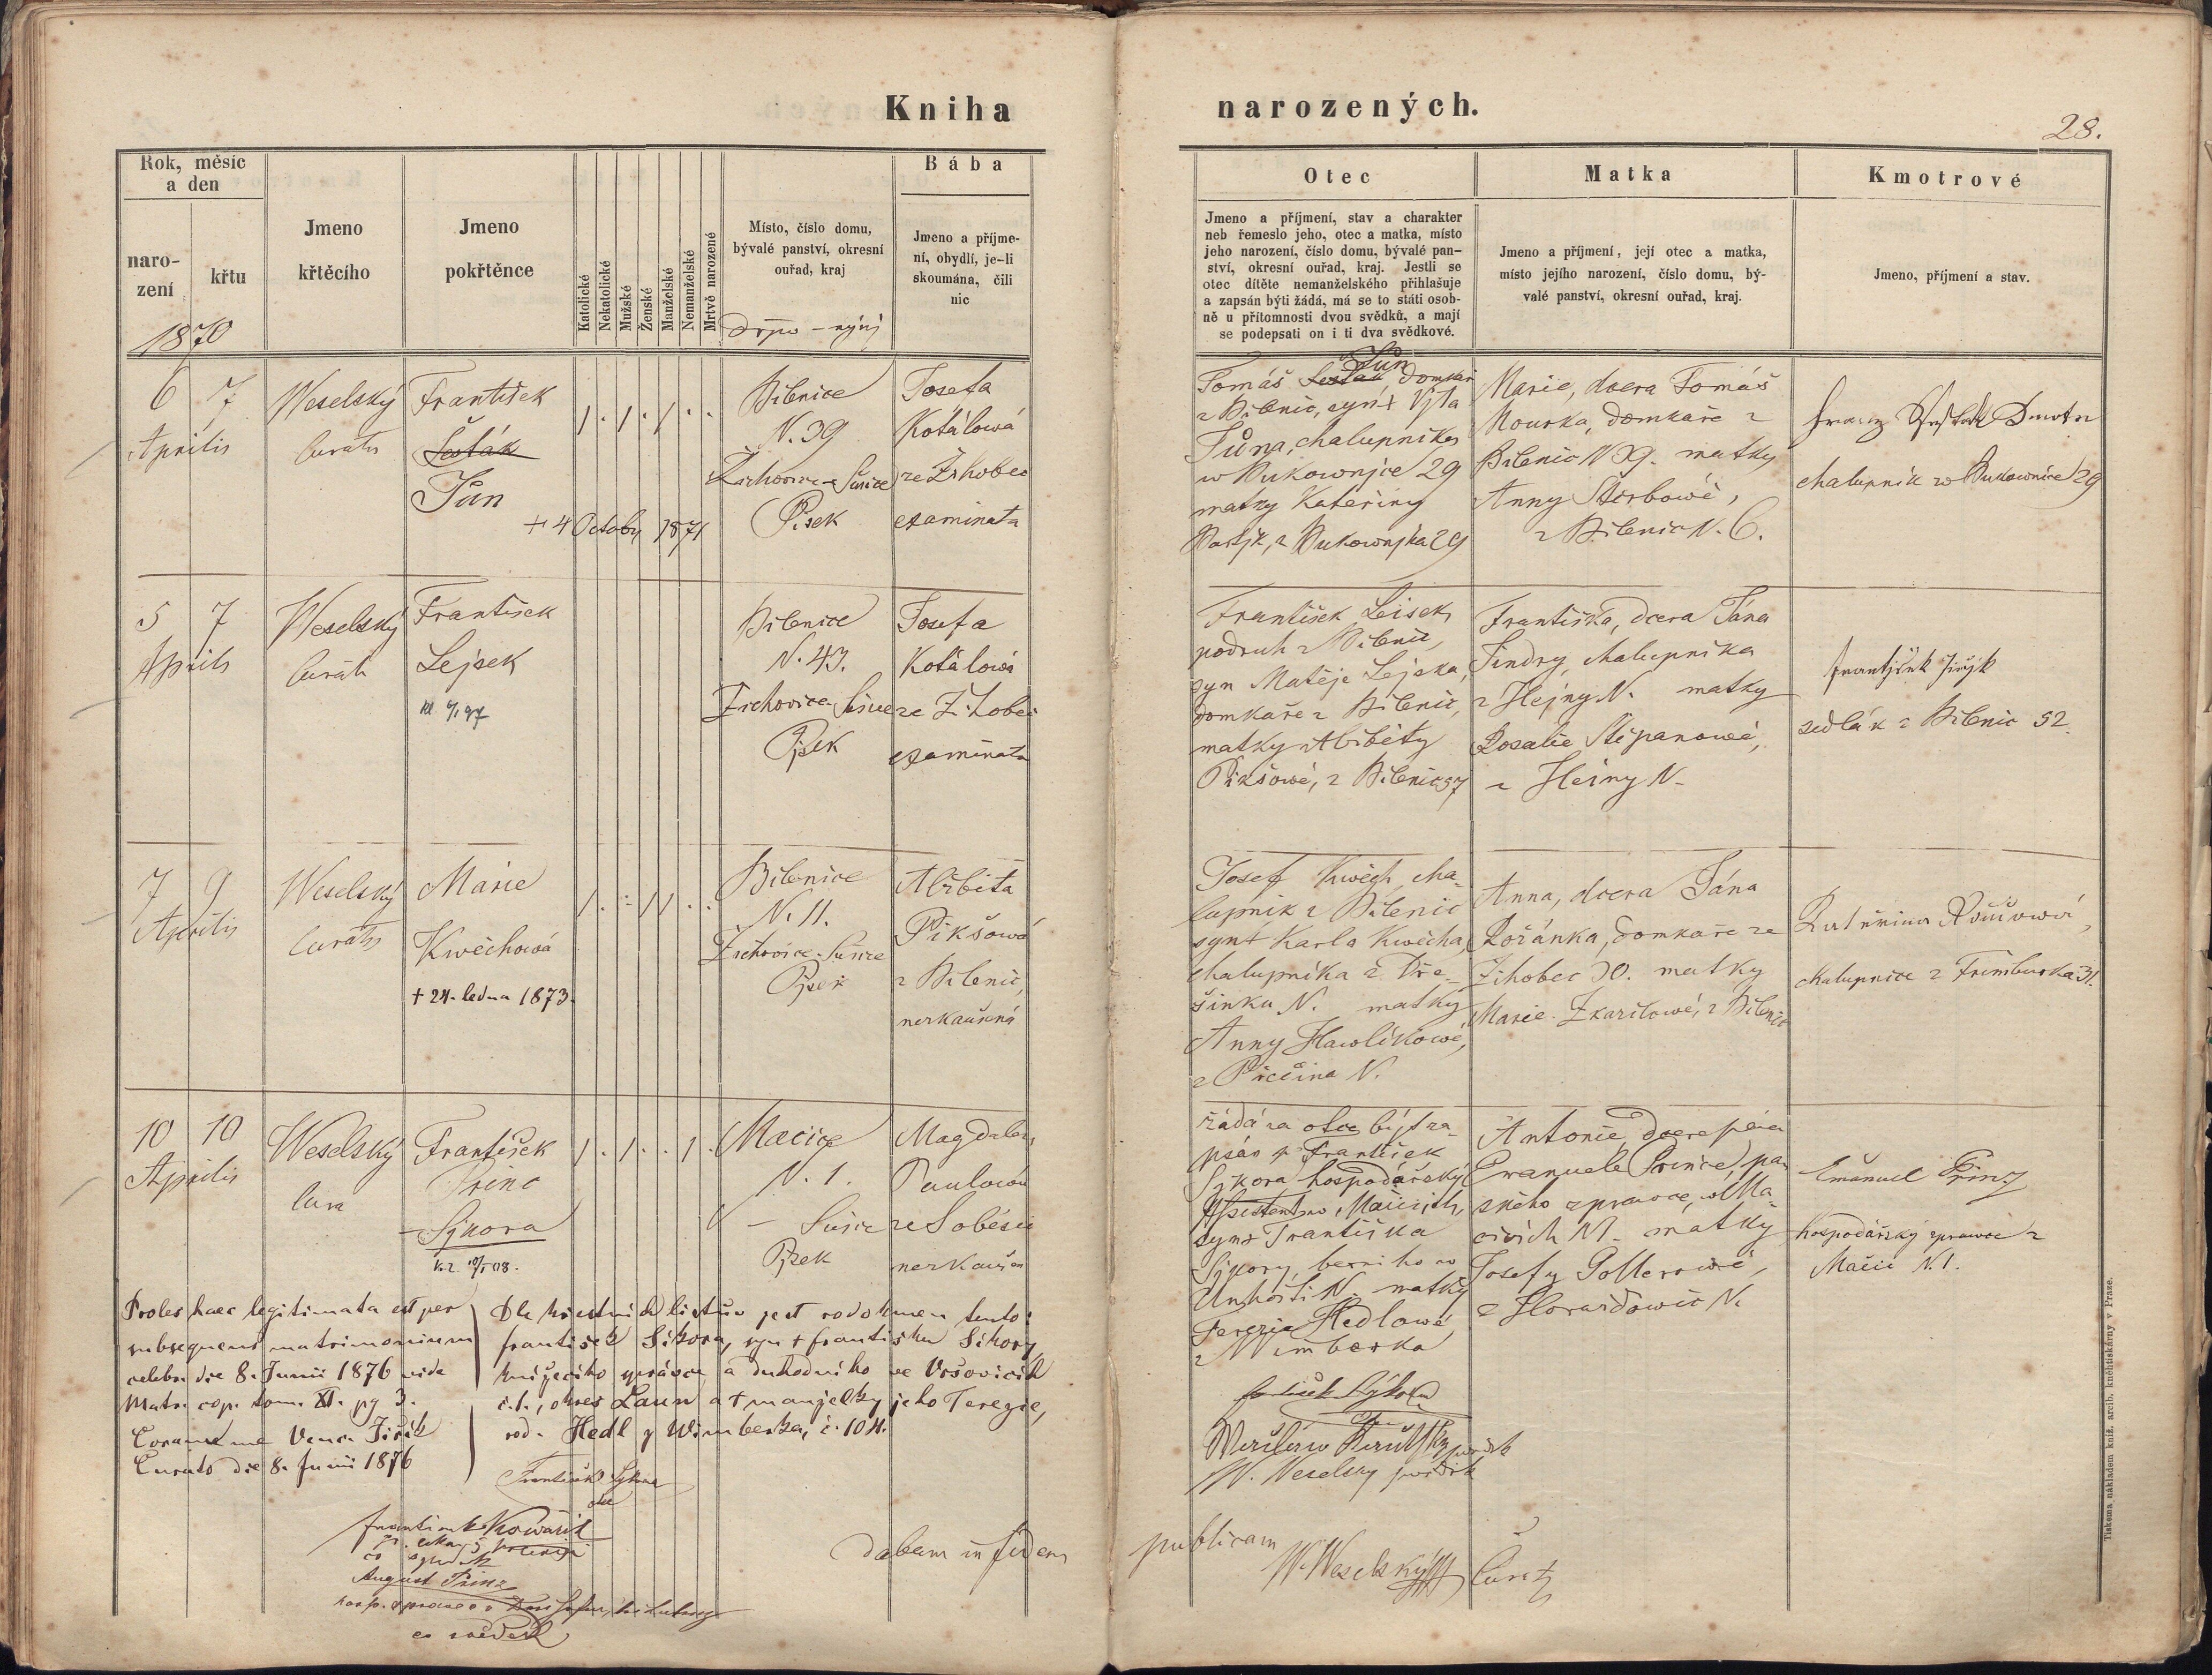 Kniha
narozených.
28.
Rok, měsíc
a den
naro-
zení
křtu
1870
Jmeno
křtěcího
Jmeno
pokřtěnce
Katolické
Nekatolické
Mužské
Ženské
Manželské
Nemanželské
Mrtvě narozené
Místo, číslo domu,
bývalé panství, okresní
ouřad, kraj
Bába
Jmeno a příjme-
ní, obydlí, je-li
skoumána, čili
nic
Otec
Jmeno a příjmení, stav a charakter
neb řemeslo jeho, otec a matka, místo
jeho narození, číslo domu, bývalé pan-
ství, okresní ouřad, kraj. Jestli se
otec dítěte nemanželského přihlašuje
a zapsán býti žádá, má se to státi osob-
ně u přítomnosti dvou svědků, a mají
se podepsati on i ti dva svědkové.
Matka
Jmeno a příjmení, její otec a matka,
místo jejího narození, číslo domu, bý-
valé panství, okresní ouřad, kraj.
Kmotrové
Jmeno, příjmení a stav.
6 7
Aprilis
Weselský
Curatus
František
Šesták
Jůn
+ 4 Octobr 1871
1 . 1 . 1 . .
Bilenice
N. 39
Žichovice-Sušice
Pisek
Josefa
Kotálowá
ze Zihobec
examinata
Jůn
Tomáš Šesták, domkař
z Bilenic, syn + Vjta
Jůna, chalupnika
w Bukownjce 29
matky Kateřiny
z Bukownjka 29
Marie, dcera Tomáš
Mourka, domkaře z
Bilenic N 39. matky
Anny
z Bilenic N. 6.
chalupnik w Bukownice 29
5 7
Aprilis
Weselský
Curat
František
Lejsek
Bilenice
N. 43.
Žichovice-Sušice
Pjsek
Josefa
Kotálowá
ze Zihobec
examinata
František Leisek,
podruh z Bilenic,
syn Matěje Lejska,
domkaře z Bilenic,
matky Alžběty
Pikšowé, z Bilenic 57
Františka, dcera Jána
Jindry, chalupnika
z Hejny N. matky
Rosalie Štěpanowé,
z Hejny N-
František Jiřjk
sedlák z Bilenic 52.
7 9
Aprilis
Weselský
Curatus
Marie
Kwěchowá
+ 24. ledna 1873.
1 . . 1 1 . .
Bilenice
N. 11.
Žichovice-Sušice
Pjsek
Alžběta
Pikšowá
z Bilenic,
nezkaušená
Josef Kwěch, cha-
lupnik z Bilenic
syn + Karla Kwěcha,
chalupnika z Dře-
šinku N. matky
Anny Hawlikowé,
N.
Anna, dcera Jána
Rožánka, domkaře ze
Zihobec 70. matky
Marie z Bilenic
Kateřina
chalupnice z Frimburka 31.
10 10
Aprilis
Weselský
Cura
František
Princ
Sýkora
1 . 1 . . 1 .
Macice
N. 1.
Sušice
Pjsek
Magdalena
Paulowá
ze Soběšic
nezkaušen
Žádá za otce býti za-
psán p. František
Sýkora hospodářský
Assistent w Mačicich,
syn + Františka
Sýkory, w
Unhošti N. matky
Terezie Hedlowé
z Wimberka
Antonie, dcera pána
Emanuele Prince, pan-
ského zprawce, w Ma-
čicích N 1. matky
Josefy
z Horažďowic N.
Emanuel Prinz
hospodářský sprawce z
Mačic N. 1.
Proles haec legitimata est per
subsequens matrimonium
celebr. die 8. Junii 1876 vide
Matr. cop. tom. XI. pg 3.
Coram me Venc. Jiřík
Curato die 8. Junii 1876
Dle křestních listův jest rodokmen tento:
František Síkora, syn + Františka Síkory,
knížecího správce a důchodního ve Vršovicích
č. 1., okres Laun a + manželky jeho Terezie,
rod. Hedl z Wimberka, č. 104.
František Sýkora
otec
František Kowařík
August Prinz
co svědek
W. Weselský svědek
dabam in fidem publicam
W. Weselský Curat
Tiskem a nákladem kniž. arcib. knihtiskárny v Praze.